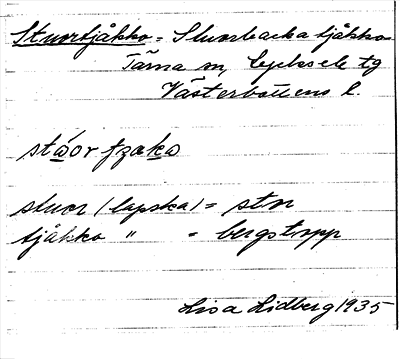 Stuortjåkko = Stuorbacka tjåkko
Tärna sn, Lycksele tg
Västerbottens l.
stå̱or tʃåko
stuor (lapska) = stor
tjåkko " = bergstopp
Lisa Lidberg 1935